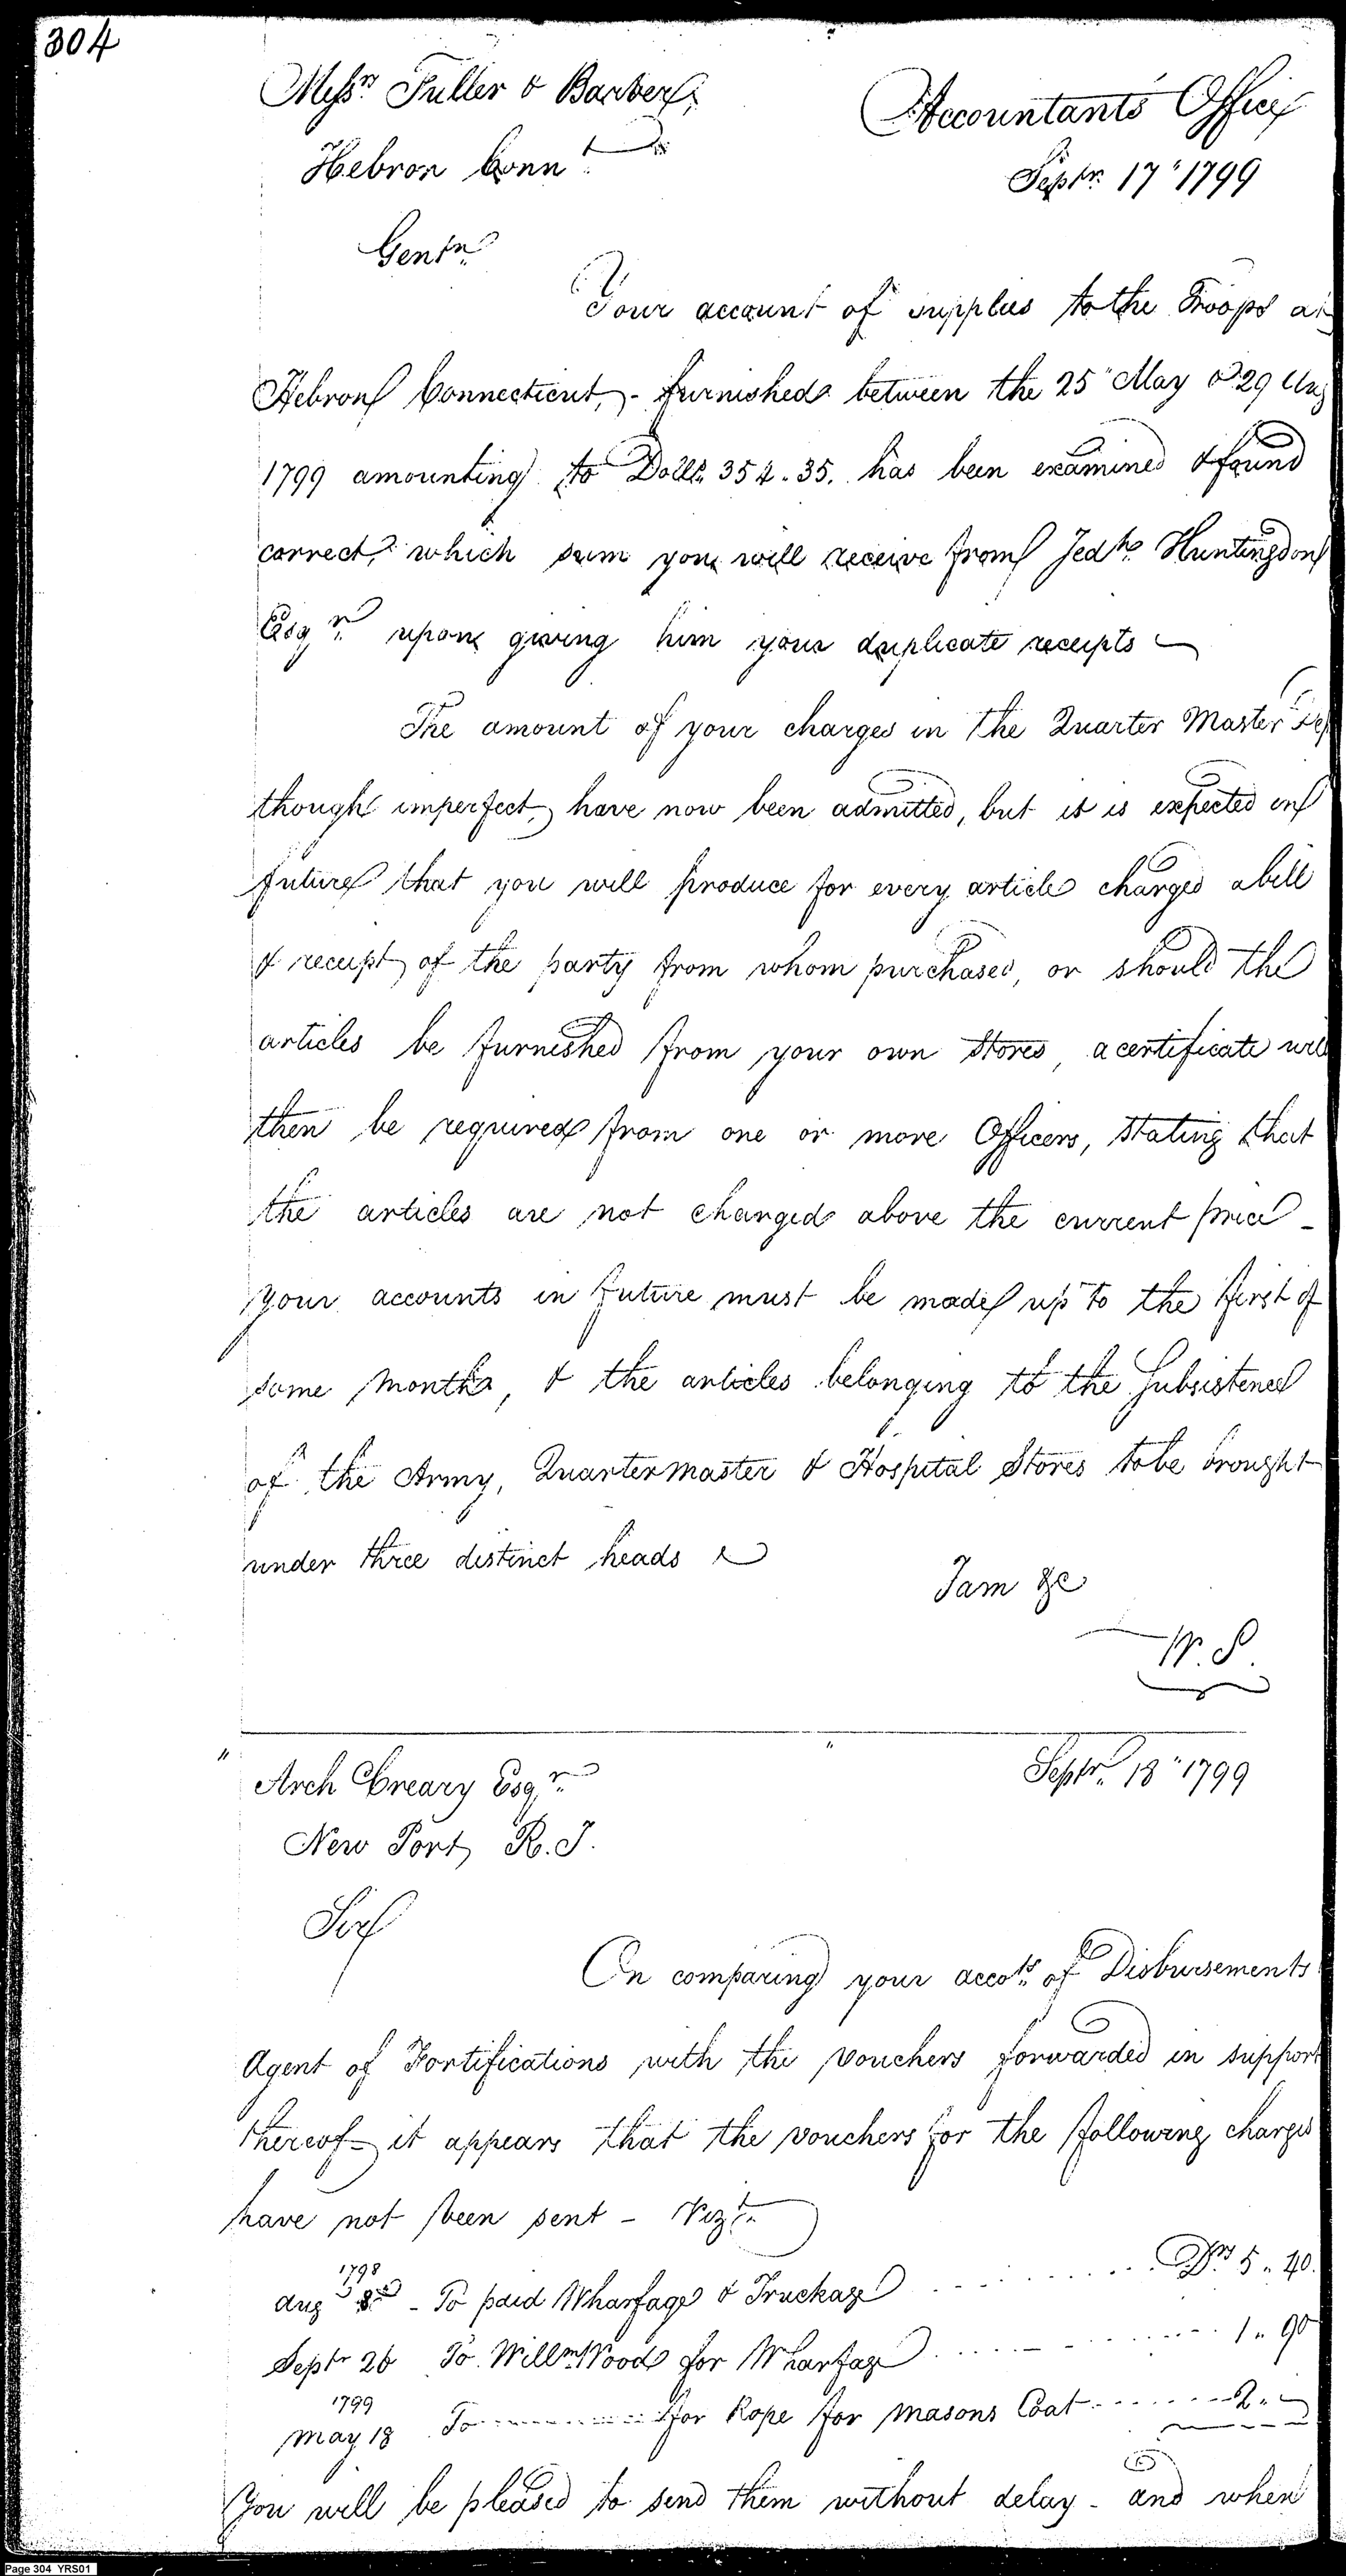 304
Messrs. Fuller & Barber,
Hebron Connt.
Accountants Office
Septr. 17" 1799
Gentn.
Your account of supplies to the Troops at
Hebron Connecticut, - furnished between the 25" May & 29 Aug
1799 amounting to Dolls. 354.35. has been examined & found
correct, which sum you will receive from Jedh. Huntingdon
Esqr. upon giving him your duplicate receipts
The amount of your charges in the Quarter Master Dep
though imperfect, have now been admitted, but it is expected in
future that you will produce for every article charged a bill
& receipt of the party from whom purchased, or should the
articles be furnished from your own Stores, a certificate will
then be required from one or more Officers, stating that
the articles are not charged above the current price -
your accounts in future must be made up to the first of
some month, & the articles belonging to the Subsistence
of the Army, Quartermaster & Hospital Stores to be brought
under three distinct heads
I am &c
W. S.
Arch Creary Esqr.
New Port, R. I.
Septr. 18" 1799
Sir
On comparing your accots. of Disbursements
Agent of Fortifications with the vouchers forwarded in support
thereof - it appears that the vouchers for the following charges
have not been sent - Vizt.
1798
Aug 8th - To paid Wharfage & Truckage Drs 5.. 40.
Septr 26 To Willm. Wood for Wharfage 1.. 90
1799
May 18 To for Rope for Masons Coat 2..
You will be pleased to send them without delay - and when
Page 304 YRS01